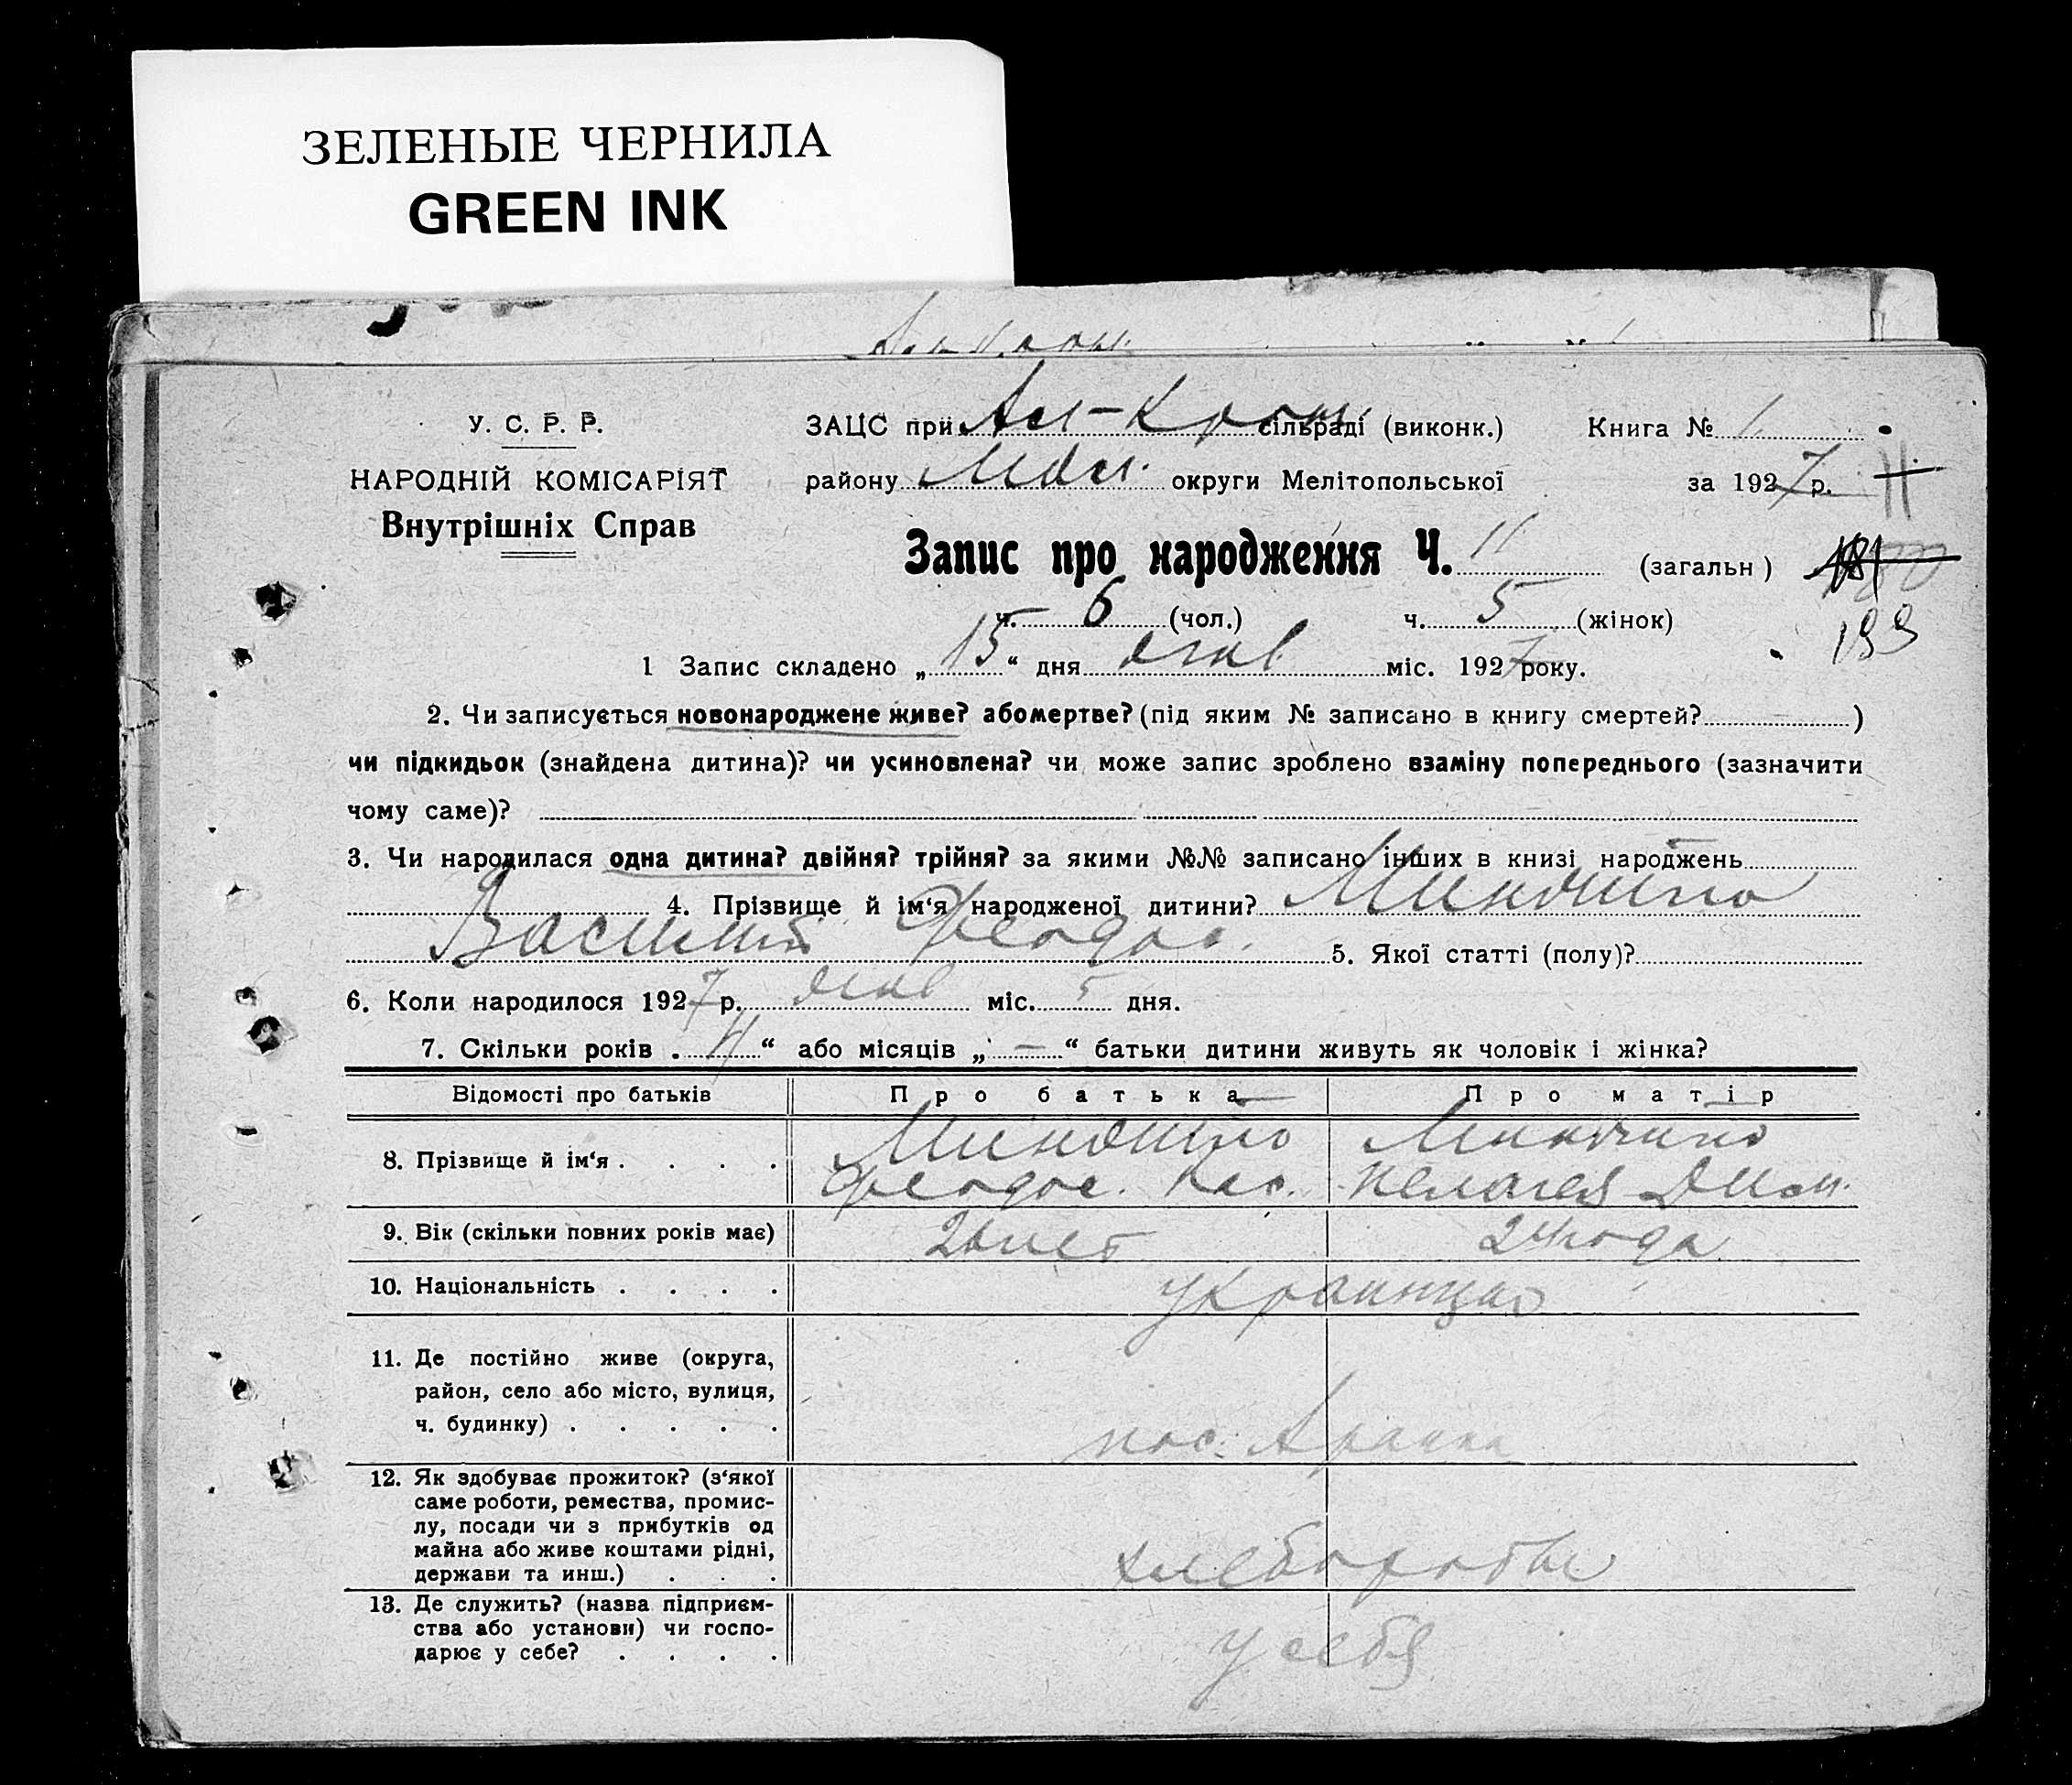 ЗЕЛЕНЫЕ ЧЕРНИЛА
GREEN INK
У. С. Р. Р.
НАРОДНІЙ КОМІСАРІЯТ
Внутрішніх Справ
ЗАЦС при сільраді (виконк.) Книга № 1
району округи Мелітопольської за 1927 р.
Запис про народження Ч. 11 (загальн)
199
ч. 6 (чол.) ч. 5 (жінок)
1 Запис складено „15“ дня янв міс. 1927 року.
2. Чи записується новонароджене живе? або мертве? (під яким № записано в книгу смертей? — )
чи підкидьок (знайдена дитина)? чи усиновлена? чи може запис зроблено взаміну попереднього (зазначити
чому саме)?
3. Чи народилася одна дитина? двійня? трійня? за якими №№ записано інших в книзі народжень
4. Прізвище й ім‘я народженої дитини?
Василий Феодос. 5. Якої статті (полу)?
6. Коли народилося 1927 р. янв міс. 5 дня.
7. Скільки років „4“ або місяців „—“ батьки дитини живуть як чоловік і жінка?
Відомості про батьків Про батька Про матір
8. Прізвище й ім‘я . . . .
Феодос. Пелагея Дим.
9. Вік (скільки повних років має) 26 лет 24 года
10. Національність . . . . украинцы
11. Де постійно живе (округа,
район, село або місто, вулиця,
ч. будинку) . . . . . пос.
12. Як здобуває прожиток? (з‘якої
саме роботи, ремества, промис-
лу, посади чи з прибутків од
майна або живе коштами рідні,
держави та инш.) . . . хлеборобы
13. Де служить? (назва підприєм-
ства або установи) чи госпо-
дарює у себе? . . . . у себя